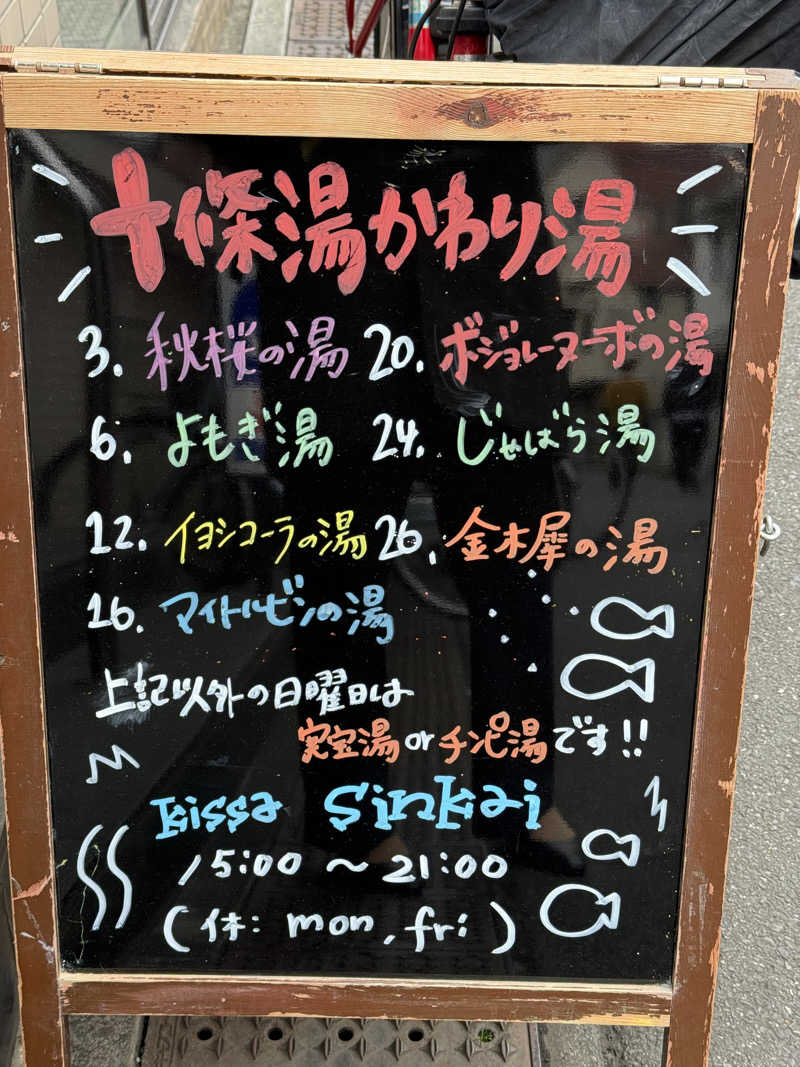 十條湯かわり湯
3. 秋桜の湯
6. よもぎ湯
12. イヨシコーラの湯
16. マイトルビンの湯
20. ボジョレーヌーボの湯
24. じゃばら湯
26. 金木犀の湯
上記以外の日曜日は
実宝湯orチンピ湯です!!
kissa Sinkai
15:00 〜 21:00
(休: mon, fri)